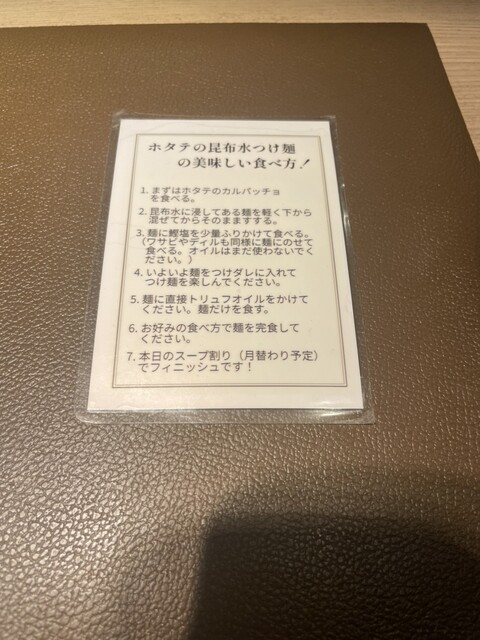 ホタテの昆布水つけ麺
の美味しい食べ方!
1. まずはホタテのカルパッチョ
を食べる。
2. 昆布水に浸してある麺を軽く下から
混ぜてからそのまますする。
3. 麺に鰹塩を少量ふりかけて食べる。
(ワサビやディルも同様に麺にのせて
食べる。オイルはまだ使わないでく
ださい。)
4. いよいよ麺をつけダレに入れて
つけ麺を楽しんでください。
5. 麺に直接トリュフオイルをかけて
ください。麺だけを食す。
6. お好みの食べ方で麺を完食して
ください。
7. 本日のスープ割り(月替わり予定)
でフィニッシュです!